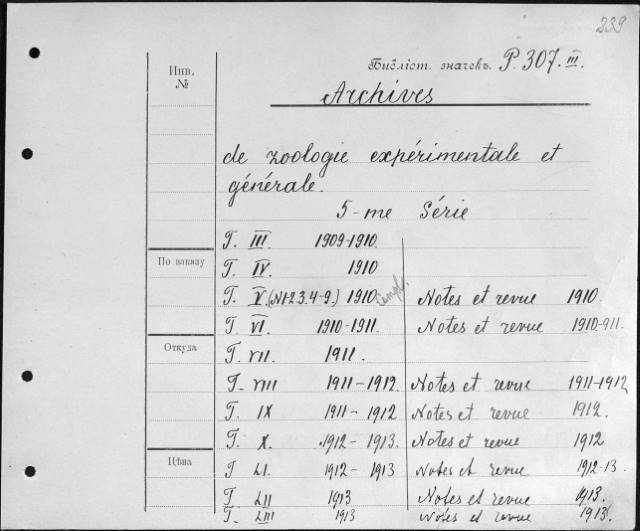 239
Инв. №
Библіот. значекъ P. 307. III.
Archives
de zoologie expérimentale et
générale.
5-me Série
По заказу
Откуда
Цѣна
T. III. 1909-1910.
T. IV. 1910
T. V. (N1-2.3.4-9.) 1910 Notes et revue 1910.
T. VI. 1910-1911. Notes et revue 1910-911.
T. VII. 1911.
T. VIII 1911-1912. Notes et revue 1911-1912
T. IX 1911-1912 Notes et revue 1912.
T. X. 1912-1913. Notes et revue 1912
T LI. 1912-1913 Notes et revue 1912-13.
T LII 1913 Notes et revue 1913.
T. LIII 1913 Notes et revue 1913.